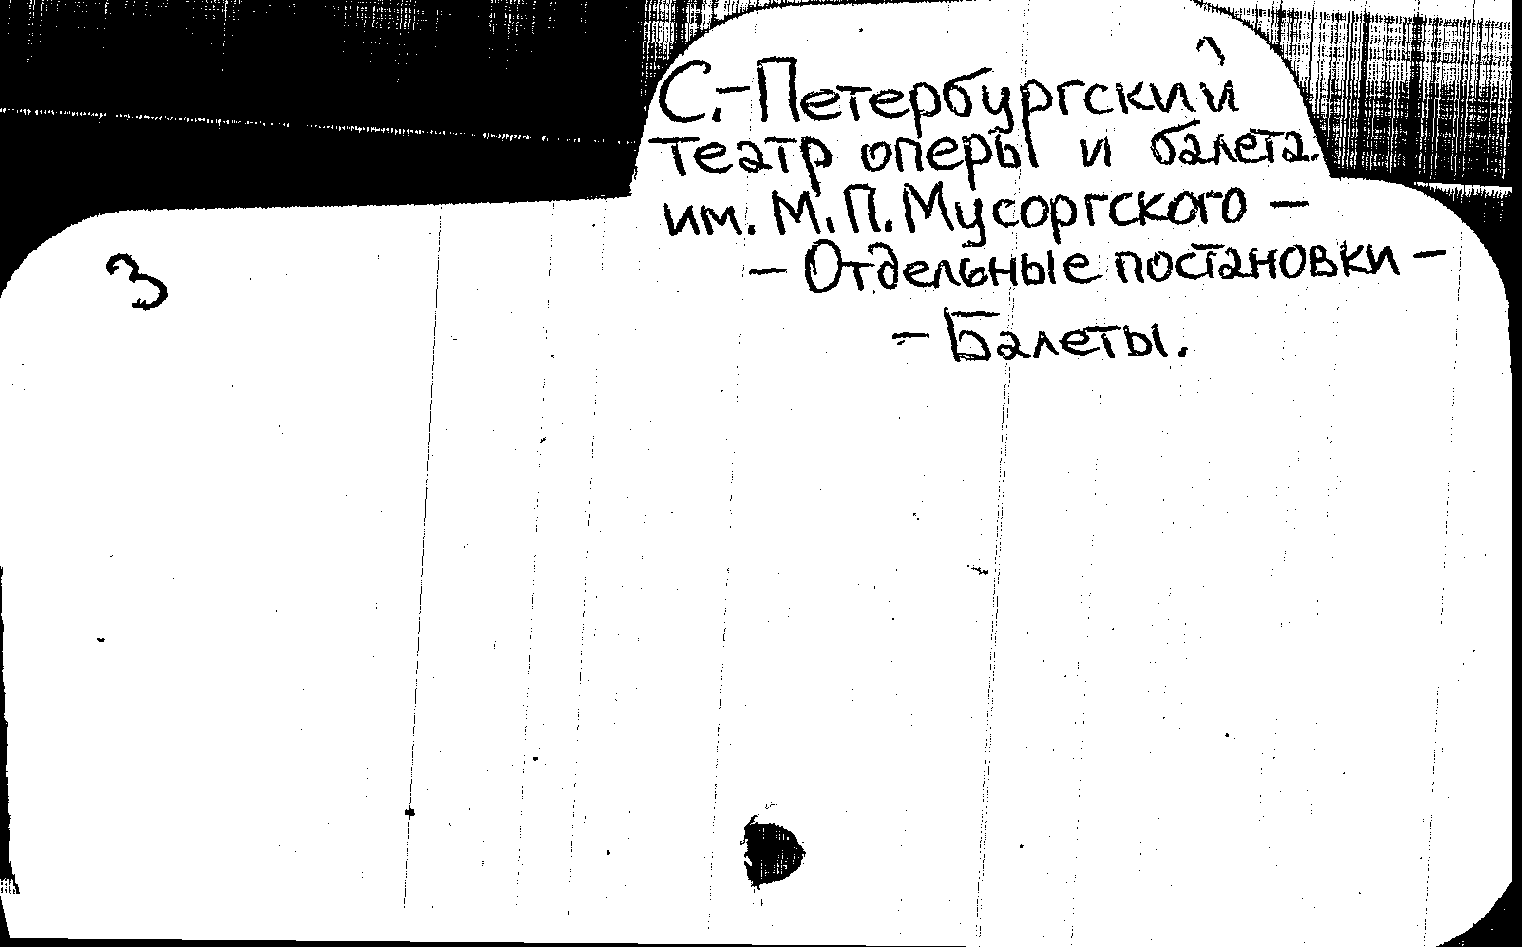 С.-Петербургский
театр оперы и балета.
им. М.П. Мусоргского —
3
— Отдельные постановки —
— Балеты.